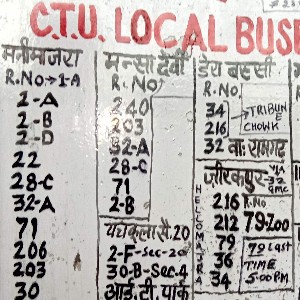 C.T.U. LOCAL BUS
मनीमाजरा
R.No→1-A
2-A
2-B
2-D
22
28-C
32-A
71
206
203
30
मन्सा देवी
R.No.
240
203
32-A
28-C
71
2-B
पंचकुला सै.20
2-F-Sec-20
30-B-Sec-4
आई.टी.पार्क
डेरा बस्सी
R.No.
34 → TRIBUNE
216 CHOWK
32 वा: रामगढ़
ज़ीरकपुर VIA 32 GMC
HELLOMAJRA
216 R.No
212 79-200
79 79 LAST
36 TIME
34 5:00 P.M